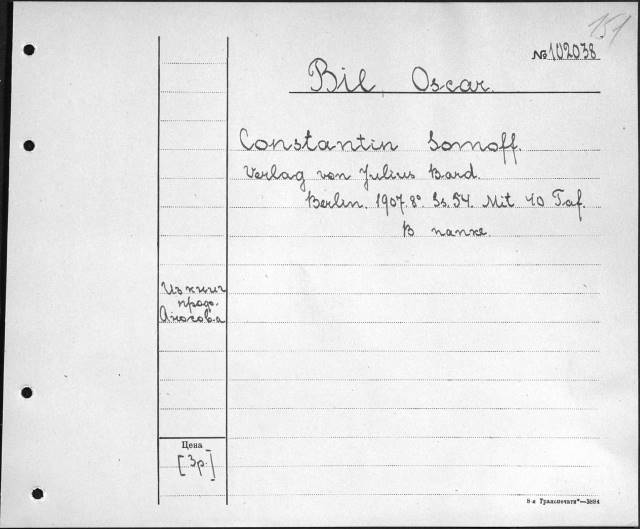 151
№ 102038
Bil, Oscar.
Constantin Somoff.
Verlag von Julius Bard.
Berlin. 1907. 8°. Ss. 54. Mit 40 Taf.
В папке.
Из книг
проф.
Аносова
Цена
[3р.]
8-я Транспечати"—3884